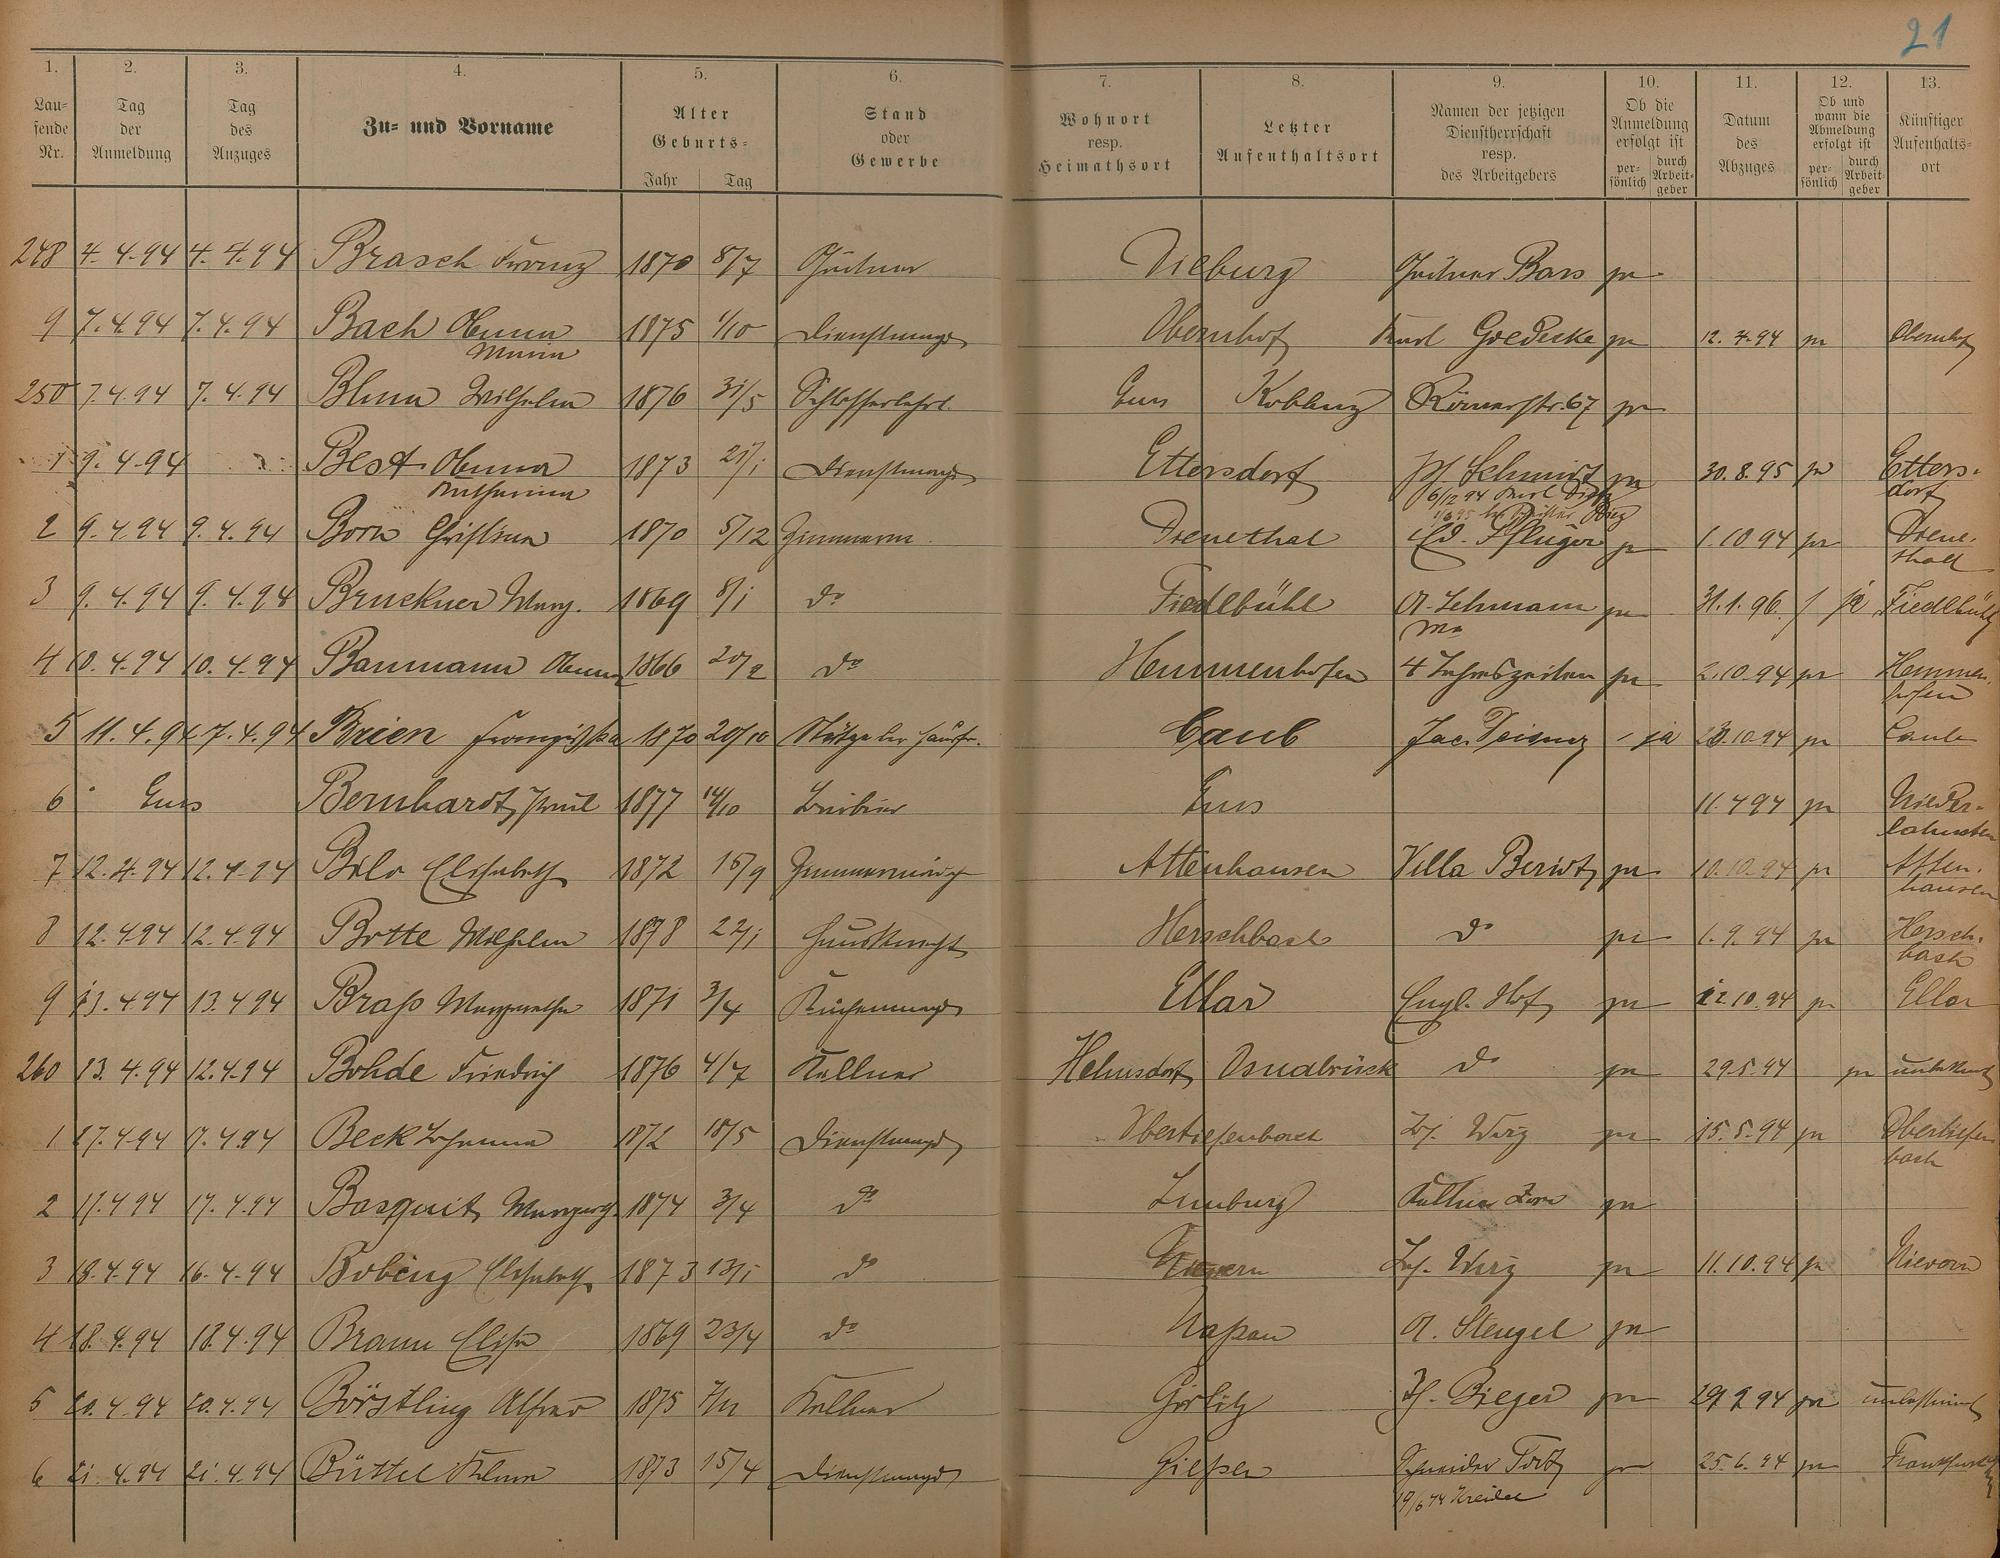 21
1. 2. 3. 4. 5. 6. 7. 8. 9. 10. 11. 12. 13.
Laufende Nr. Tag der Anmeldung Tag des Anzuges Zu- und Vorname Alter Geburts- Jahr Tag Stand oder Gewerbe Wohnort resp. Heimathsort Letzter Aufenthaltsort Namen der jetzigen Dienstherrschaft resp. des Arbeitgebers Ob die Anmeldung erfolgt ist persönlich durch Arbeitgeber Datum des Abzuges Ob und wann die Abmeldung erfolgt ist persönlich durch Arbeitgeber Künftiger Aufenthaltsort
248 4.4.94 4.4.94 Brasch Franz 1870 8/7 Dieburg ja
9 7.4.94 7.4.94 Bach Anna 1875 1/10 Dienstmagd Obernhof Karl Goedecke ja 12.4.94 ja Obernhof
Maria
250 7.4.94 7.4.94 Blum Wilhelm 1876 31/5 Schlosserlehrl. Ems Koblenz Römerstr. 67 ja
1 9.4.94 Best Anna 1873 Dienstmagd Ettersdorf Schmidt ja 30.8.95 ja Etters-
Katharina dorf
2 9.4.94 9.4.94 Born Christina 1870 5/12 Zimmerm. Dienethal Ed. Pflüger ja 1.10.94 ja Diene-
thal
3 9.4.94 9.4.94 Bruckner Marg. 1869 8/1 do Fiedlbühl A. Lehmann ja 31.1.96 / ja Fiedlbühl
4 10.4.94 10.4.94 Baumann Anna 1866 20/2 do Hemmenhofen 4 Jahreszeiten ja 2.10.94 ja Hemmen-
hofen
5 11.4.94 7.4.94 Brien Franziska 1870 20/10 Stütze der Hausfr. Caub Jac. - ja 23.10.94 ja Caub
6 Ems Bernhardt Paul 1877 14/10 Barbier Ems 11.4.94 ja Nieder-
lahnstein
7 12.4.94 12.4.94 Elisabeth 1872 15/9 Attenhausen Villa ja 10.10.94 ja Atten-
hausen
8 12.4.94 12.4.94 Botte Wilhelm 1878 22/1 Hausknecht Herschbach do ja 1.9.94 ja Hersch-
bach
9 13.4.94 13.4.94 Braß Margarethe 1871 3/4 Küchenmagd Ellar Engl. Hof ja 12.10.94 ja Ellar
260 13.4.94 12.4.94 Bohde Friedrich 1876 4/7 Kellner Helmsdorf Osnabrück do ja 29.5.94 ja unbekannt
1 17.4.94 17.4.94 Beck Johanna 1872 18/5 Dienstmagd Obertiefenbach Wirz ja 15.5.94 ja Obertiefen-
bach
2 17.4.94 17.4.94 Basquit 1874 3/4 do Limburg ja
3 18.4.94 16.4.94 Elisabeth 1873 13/1 do Wirz ja 11.10.94 ja Nievern
4 18.4.94 18.4.94 Braun Elise 1869 23/4 do Naßau A. Stengel ja
5 20.4.94 20.4.94 Börstling Alfred 1875 Kellner Görlitz Bieger ja 29.9.94 ja unbestimmt
6 21.4.94 21.4.94 Büttel 1873 15/4 Dienstmagd Gießen Schneider ja 25.6.94 ja Frankfurt
19/6 94